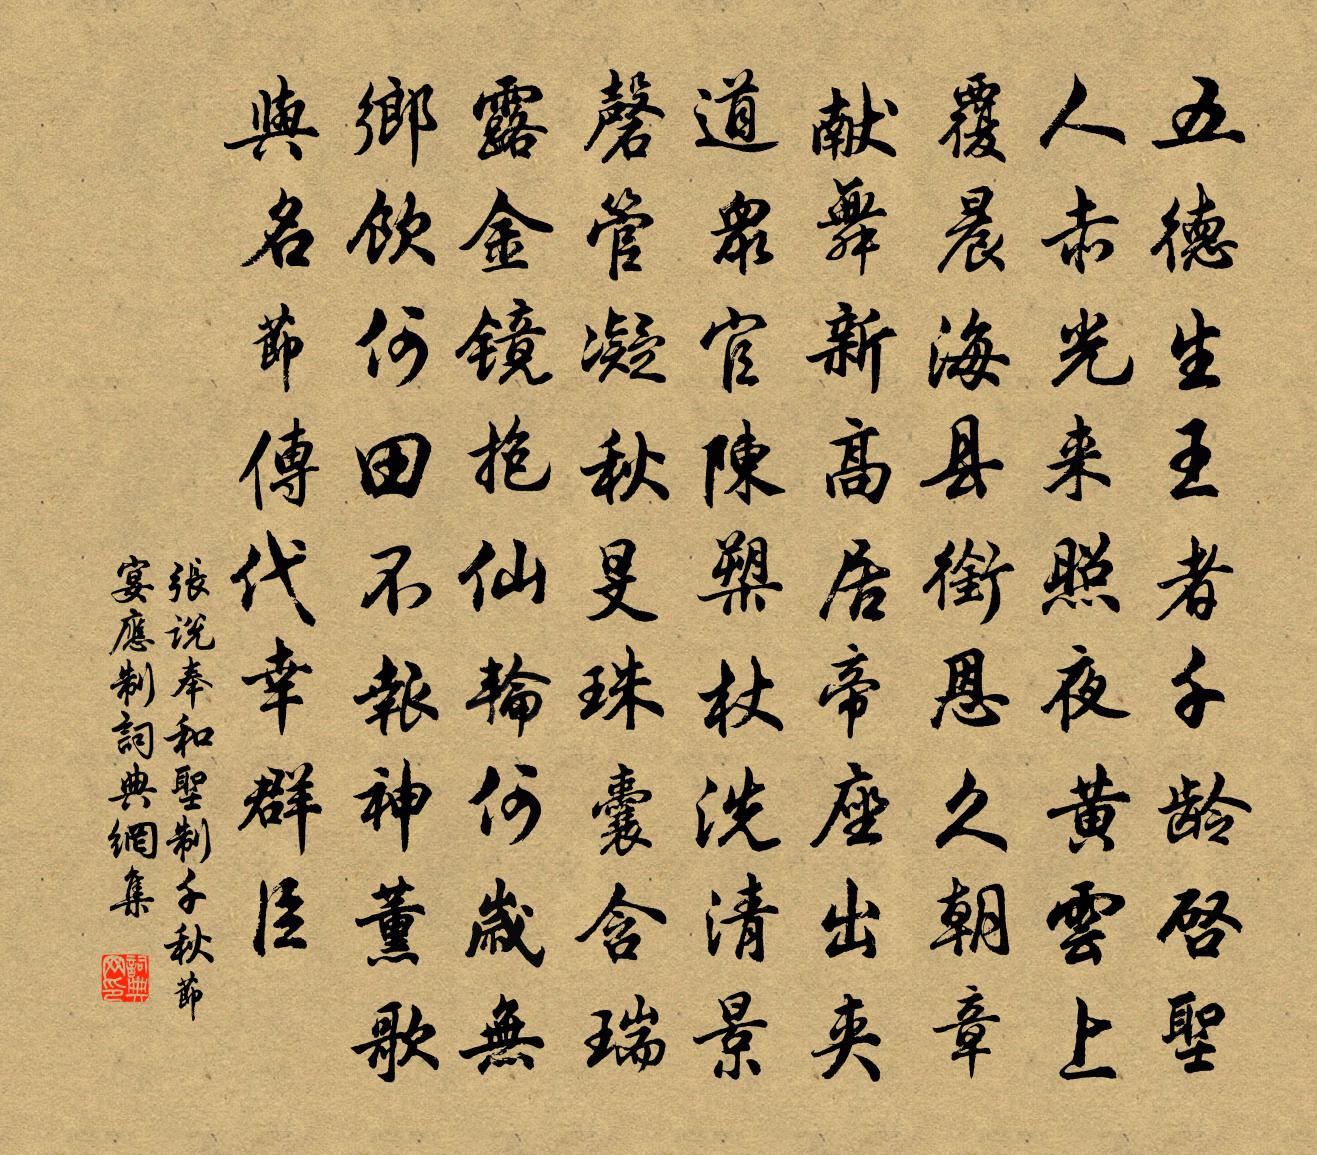 五德生王者千齡啓聖
人赤光来照夜黄雲上
覆晨海县銜恩久朝章
献舞新高居帝座出夾
道衆官陳槊杖洗清景
磬管凝秋旻珠囊含瑞
露金镜抱仙輪何歲無
鄉飲何田不報神薰歌
與名節傳代幸群臣
張说奉和聖制千秋節
宴應制詞典網集
詞典网印